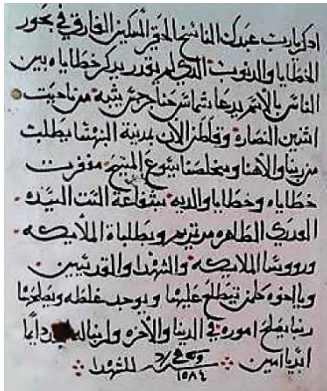 اذكر يارب عبدك الناسخ الحقير المسكين الغارق في بحور
الخطايا والذنوب الذي لم يقدر يذكر خطاياه بين
الناس بالاسم يدعا شماس حنا جرجس شبه من ناحيت
النصاره وقاطن الان بمدينة البهنسا يطلب
من ربنا والاهنا ومخلصنا يسوع المسيح مغفرت
خطاياه وخطايا والديه بشفاعة الست السيده
العدري الطاهره مرتمريم وبطلباة الملايكه
وروسا الملايكه والشهدا والقديسين
ويا اخوه كلمن يطلع عليها ويوجد غلطه ويصلحها
ربنا يصلح اموره في الدنيا والاخره ولربنا المجد دايما
ابديا امين
للشهدا